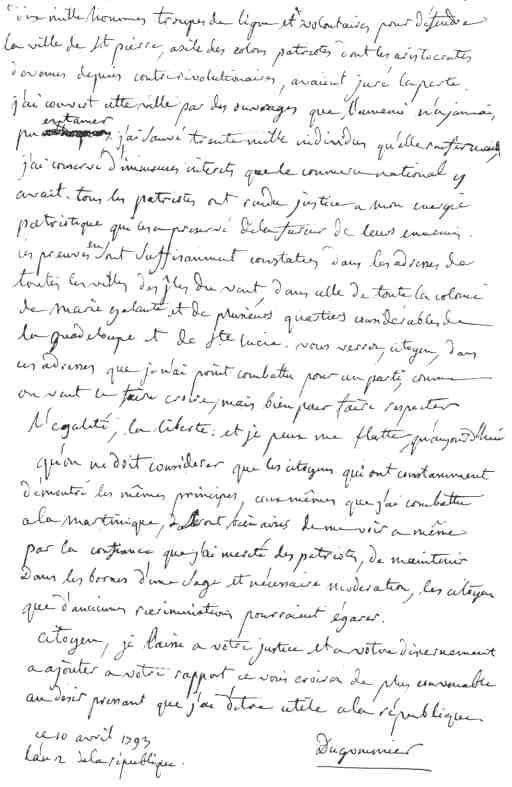 dix mille hommes troupes de ligne et volontaires pour défendre
la ville de St pierre, asile des colons patriotes dont les aristocrates
devenus depuis contrerevolutionaires, avaient juré la perte.
j'ai couvert cette ville par des ouvrages que l'ennemi n'a jamais
pu entamer j'ai sauvé trente mille individus qu'elle renfermait
j'ai conservé d'immenses interets que le commerce national y
avait. tous les patriotes ont rendu justice a mon energie
patriotique qui les a preservé de la fureur de leurs ennemis.
les preuves en sont suffisamment constatées dans les adresses de
toutes les villes des jles du vent dans celle de toute la colonie
de marie galante et de plusieurs quartiers considérables de
la guadeloupe et de Ste Lucie. vous verrez, citoyen, dans
ces adresses que je n'ai point combattu pour un parti, comme
on veut le faire croire, mais bien pour faire respecter
l'egalité, la liberté. et je peux me flatter, qu'aujourd'hui
qu'on ne doit considerer que les citoyens qui ont constamment
démontré les mêmes principes, ceux mêmes que j'ai combattu
a la martinique, seront bien aises de me voir a même
par la confiance que j'ai merité des patriotes, de maintenir
dans les bornes d'une sage et nécessaire moderation, les citoyens
que d'anciennes recriminations pourraient égarer.
Citoyen, je laisse a votre justice et a votre discernement
a ajouter a votre rapport ce vous croirez de plus convenable
au desir pressant que j'ai d'être utile a la république
ce 10 avril 1793
l'an 2 de la république.
Dugommier